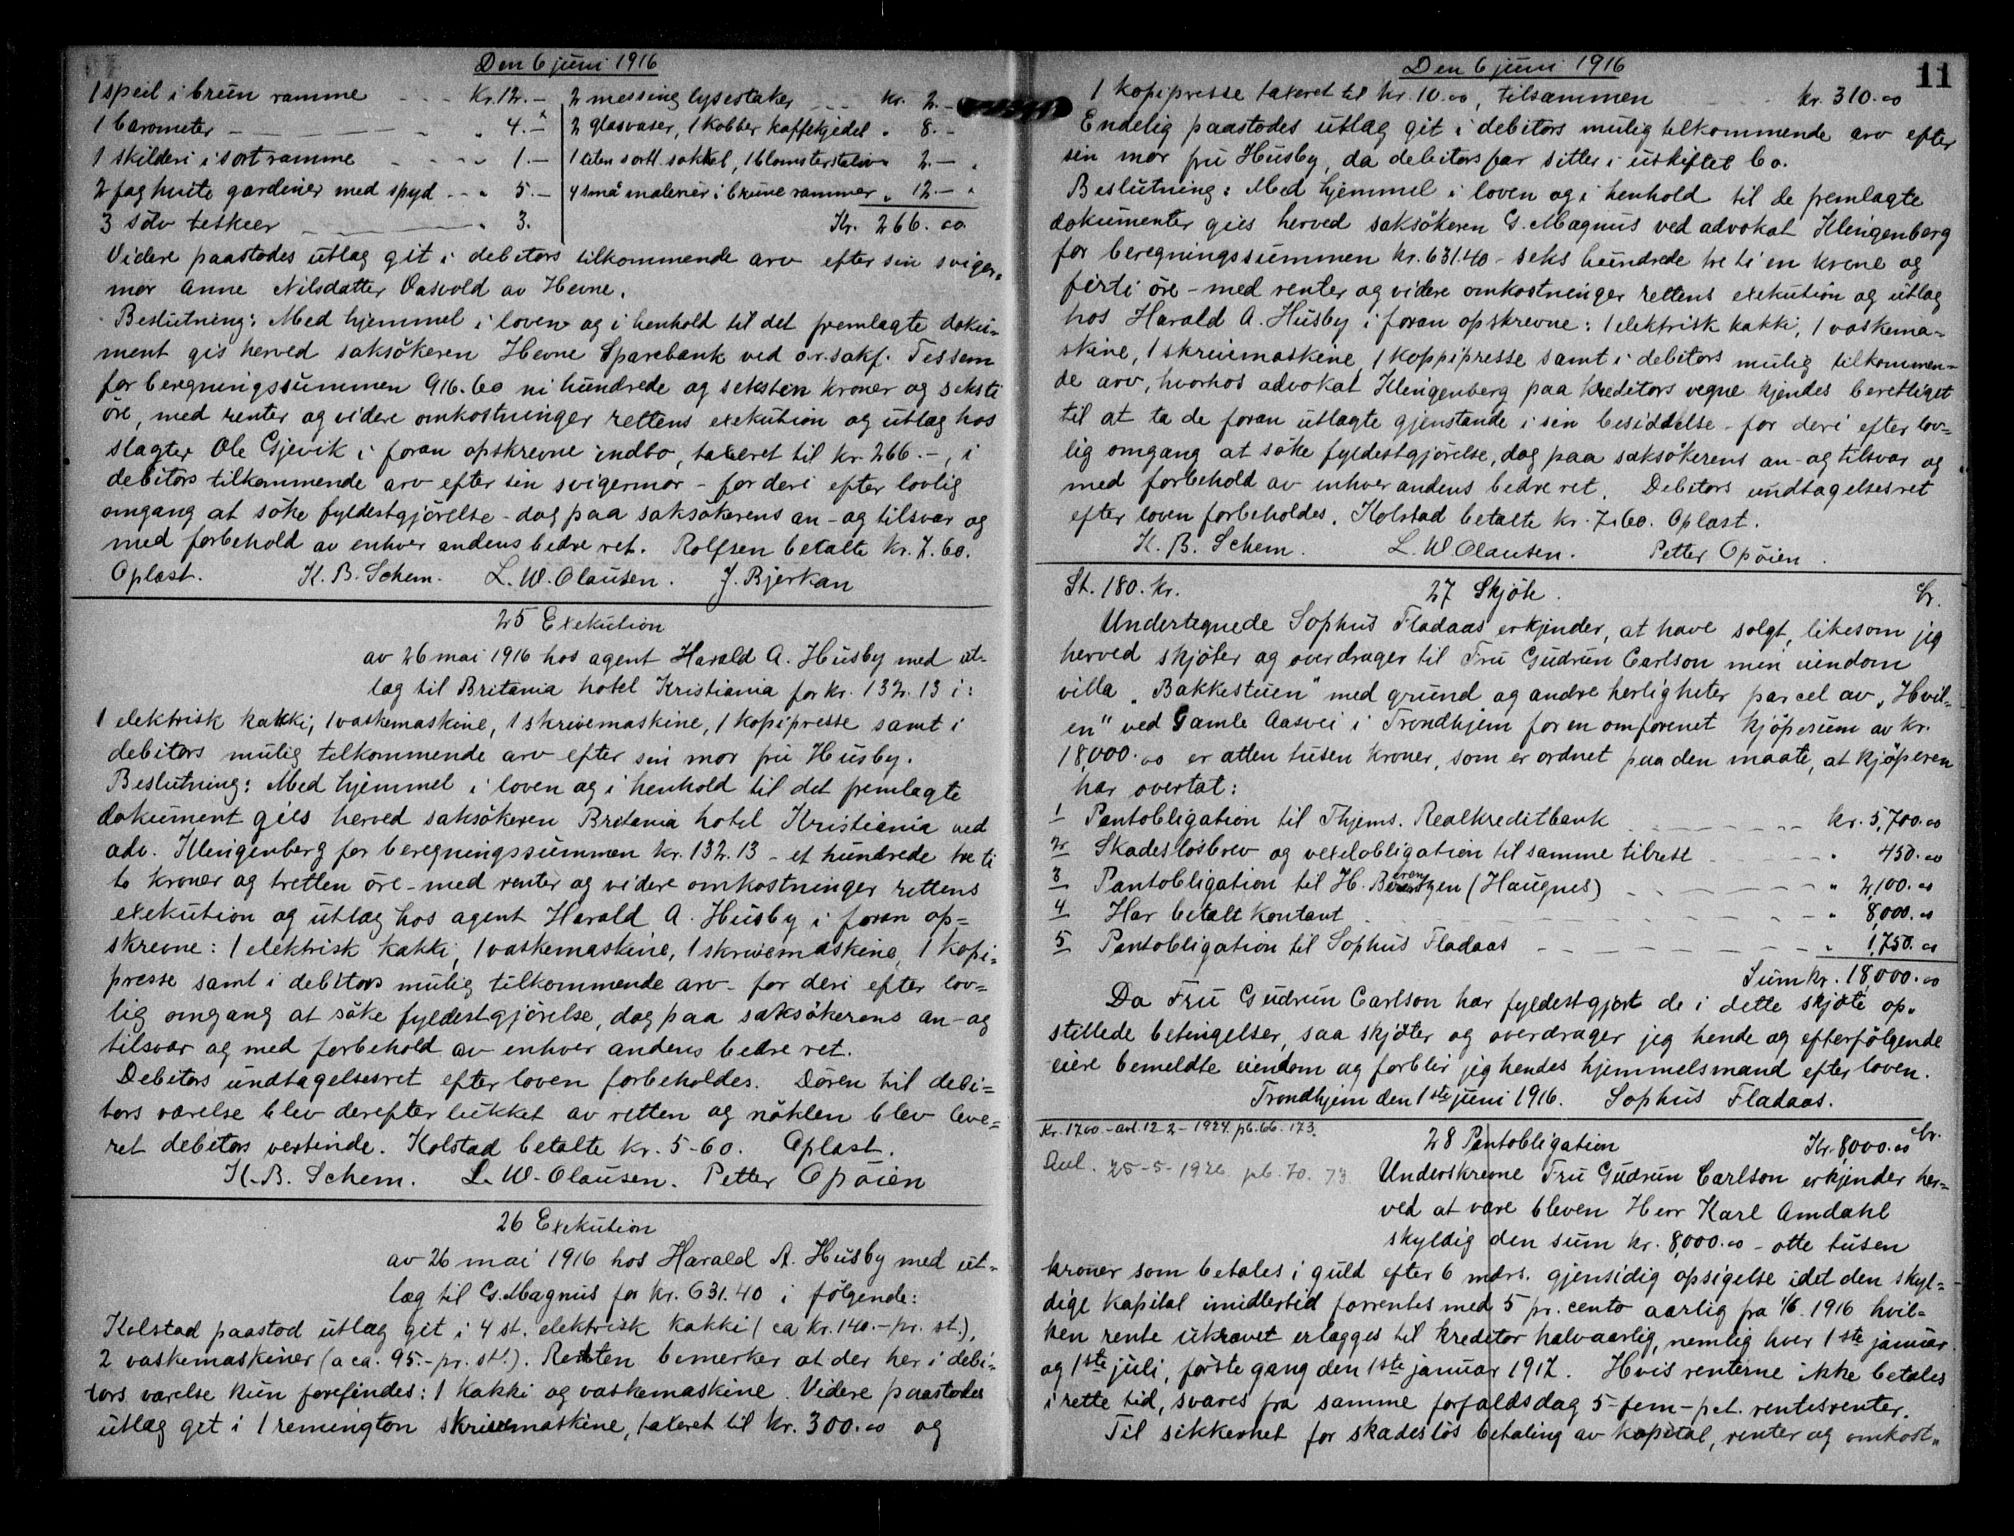 Den 6 juni 1916
1 speil i brun ramme - - - Kr. 12.-
1 barometer - - - - - " 4.-
1 skilderi i sort ramme - - - " 1.-
2 fag hvite gardiner med spyd - - " 5.-
3 sölv teskeer - - - " 3.
2 messing lysestaker - - kr. 2.-
2 glasvaser, 1 kobber kaffekjedel " 8.-
1 liten sort sokkel, 1 blomsterstativ " 2.-
4 små malerier i brune rammer " 12.-
Kr. 266.00
Videre paastodes utlæg git i debitors tilkommende arv efter sin sviger-
mor Anne Nilsdatter Oasvold av Hevne.
Beslutning: Med hjemmel i loven og i henhold til det fremlagte doku-
ment gis herved saksökeren Hevne Sparebank ved o.r.sakf. Tessem
for beregningssummen 916.60 ni hundrede og seksten kroner og seksti
öre, med renter og videre omkostninger rettens exekution og utlæg hos
slagter Ole Gjevik i foran opskrevne indbo, taxeret til kr. 266.-, i
debitors tilkommende arv efter sin svigermor - for deri efter lovlig
omgang at söke fyldestgjörelse - dog paa saksökerens an- og tilsvar og
med forbehold av enhver andens bedre ret. Rolfsen betalte kr. 7.60.
Oplæst. K. B. Schem. L. W. Olausen. J. Bjerkan
25 Exekution
av 26 mai 1916 hos agent Harald A. Husby med ut-
læg til Britania hotel Kristiania for kr. 132.13 i:
1 elektrisk kakki, 1 vaskemaskine, 1 skrivemaskine, 1 kopipresse samt i
debitors mulig tilkommende arv efter sin mor fru Husby.
Beslutning: Med hjemmel i loven og i henhold til det fremlagte
dokument gies herved saksökeren Britania hotel Kristiania ved
adv. Klingenberg for beregningssummen kr. 132.13 - et hundrede tre ti
to kroner og tretten öre - med renter og videre omkostninger rettens
exekution og utlæg hos agent Harald A. Husby i foran op=
skrevne: 1 elektrisk kakki, 1 vaskemaskine, 1 skrivemaskine, 1 kopi-
presse samt i debitors mulig tilkommende arv - for deri efter lov=
lig omgang at söke fyldestgjörelse, dog paa saksökerens an- og
tilsvar og med forbehold av enhver andens bedre ret.
Debitors undtagelsesret efter loven forbeholdes. Dören til debi=
tors værelse blev derefter lukket av retten og nöklen blev leve=
ret debitors vertinde. Kolstad betalte kr. 5-60. Oplæst.
K. B. Schem. L. W. Olausen. Petter Opöien
26 Exekution
av 26 mai 1916 hos Harald A. Husby med ut-
læg til G. Magnus for kr. 631.40 i fölgende:
Kolstad paastod utlæg git i 4 st. elektrisk kakki (ca kr. 140.- pr. st.),
2 vaskemaskiner (a ca. 95.- pr. st.). Retten bemerker at der her i debi-
tors værelse kun forefindes: 1 kakki og vaskemaskine. Videre paastodes
utlæg git i 1 remington skrivemaskine, taxeret til kr. 300.00 og
Den 6 juni 1916
11
1 kopipresse taxeret til kr. 10.00, tilsammen - - - kr. 310.00
Endelig paastodes utlæg git i debitors mulig tilkommende arv efter
sin mor fru Husby, da debitors far sitter i uskiftet bo.
Beslutning: Med hjemmel i loven og i henhold til de fremlagte
dokumenter gies herved saksökeren G. Magnus ved advokat Klingenberg
for beregningssummen kr. 631.40 - seks hundrede tre ti en krone og
firti öre - med renter og videre omkostninger rettens exekution og utlæg
hos Harald A. Husby i foran opskrevne: 1 elektrisk kakki, 1 vaskema-
skine, 1 skrivemaskine, 1 koppipresse samt i debitors mulig tilkommen=
de arv, hvorhos advokat Klingenberg paa kreditors vegne kjendes berettiget
til at ta de foran utlagte gjenstande i sin besiddelse - for deri efter lov=
lig omgang at söke fyldestgjörelse, dog paa saksökerens an- og tilsvar og
med forbehold av enhver andens bedre ret. Debitors undtagelsesret
efter loven forbeholdes. Kolstad betalte kr. 7.60. Oplæst.
K. B. Schem. L. W Olausen. Petter Opöien.
St. 180. kr. 27 Skjöte.
Undertegnede Sophus Fladaas erkjender, at have solgt, likesom jeg
herved skjöter og overdrager til Fru Gudrun Carlson min eiendom
villa "Bakkestuen" med grund og andre herligheter parcel av "Hvil-
en" ved Gamle Aasvei i Trondhjem for en omforenet kjöpesum av kr.
18,000.00 er atten tusen kroner, som er ordnet paa den maate, at kjöperen
har overtat:
1 Pantobligation til Thjems. Realkreditbank - - - kr. 5,700.00
2 Skadeslösbrev og vexelobligation til samme tilrest - - - " 450.00
3 Pantobligation til H. Berentzen (Haugnes) - - - " 2,100.00
4 Har betalt kontant - - - " 8,000.00
5 Pantobligation til Sophus Fladaas - - - " 1,750.00
Sum kr. 18,000.00
Da Fru Gudrun Carlson har fyldestgjort de i dette skjöte op-
stillede betingelser, saa skjöter og overdrager jeg hende og efterfölgende
eiere bemeldte eiendom og forblir jeg hendes hjemmelsmand efter loven.
Trondhjem den 1ste juni 1916. Sophus Fladaas.
Kr. 1700.- avl. 12-2-1924. pb. 66. 173.
Avl. 25-5-1926 pb. 70. 73
28 Pantobligation Kr. 8,000.00
Underskrevne Fru Gudrun Carlson erkjender her=
ved at være bleven Herr Karl Amdahl
skyldig den sum kr. 8,000.00 - otte tusen
kroner som betales i guld efter 6 mdrs. gjensidig opsigelse idet den skyl-
dige kapital imidlertid forrentes med 5 pr. cento aarlig fra 1/6. 1916 hvil-
ken rente ukrævet erlægges til kreditor halvaarlig, nemlig hver 1ste januar
og 1ste juli, förste gang den 1ste januar 1917. Hvis renterne ikke betales
i rette tid, svares fra samme forfaldsdag 5 - fem - pct. rentesrenter.
Til sikkerhet for skadeslös betaling av kapital, renter og omkost-